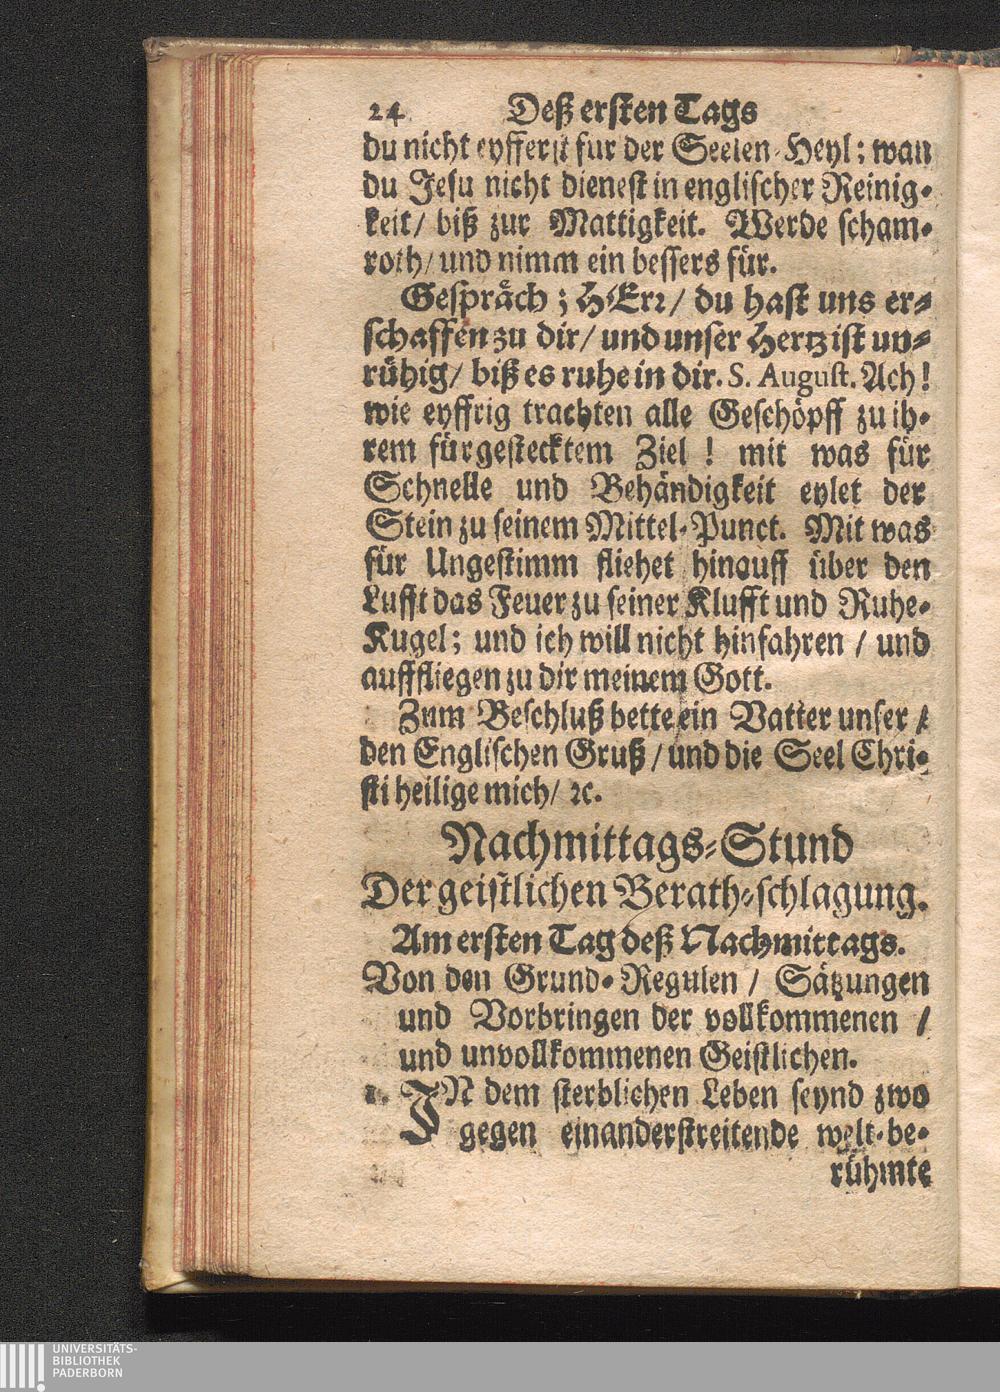 24 Deß ersten Tags
du nicht eyfferst fur der Seelen-Heyl; wan
du Jesu nicht dienest in englischer Reinig-
keit/ biß zur Mattigkeit. Werde scham-
roth/ und nimm ein bessers für.
Gespräch; HErr/ du hast uns er-
schaffen zu dir/ und unser Hertz ist un-
rühig/ biß es ruhe in dir. S. August. Ach!
wie eyffrig trachten alle Geschöpff zu ih-
rem fürgestecktem Ziel! mit was für
Schnelle und Behändigkeit eylet der
Stein zu seinem Mittel-Punct. Mit was
für Ungestimm fliehet hinauff über den
Lufft das Feuer zu seiner Klufft und Ruhe-
Kugel; und ich will nicht hinfahren / und
auffliegen zu dir meinem Gott.
Zum Beschluß bette ein Vatter unser /
den Englischen Gruß / und die Seel Chri-
sti heilige mich/ ꝛc.
Nachmittags-Stund
Der geistlichen Berath-schlagung.
Am ersten Tag deß Nachmittags.
Von den Grund-Regulen / Sätzungen
und Vorbringen der vollkommenen /
und unvollkommenen Geistlichen.
1. IN dem sterblichen Leben seynd zwo
gegen einanderstreitende welt-be-
rühmte
UNIVERSITÄTS-
BIBLIOTHEK
PADERBORN